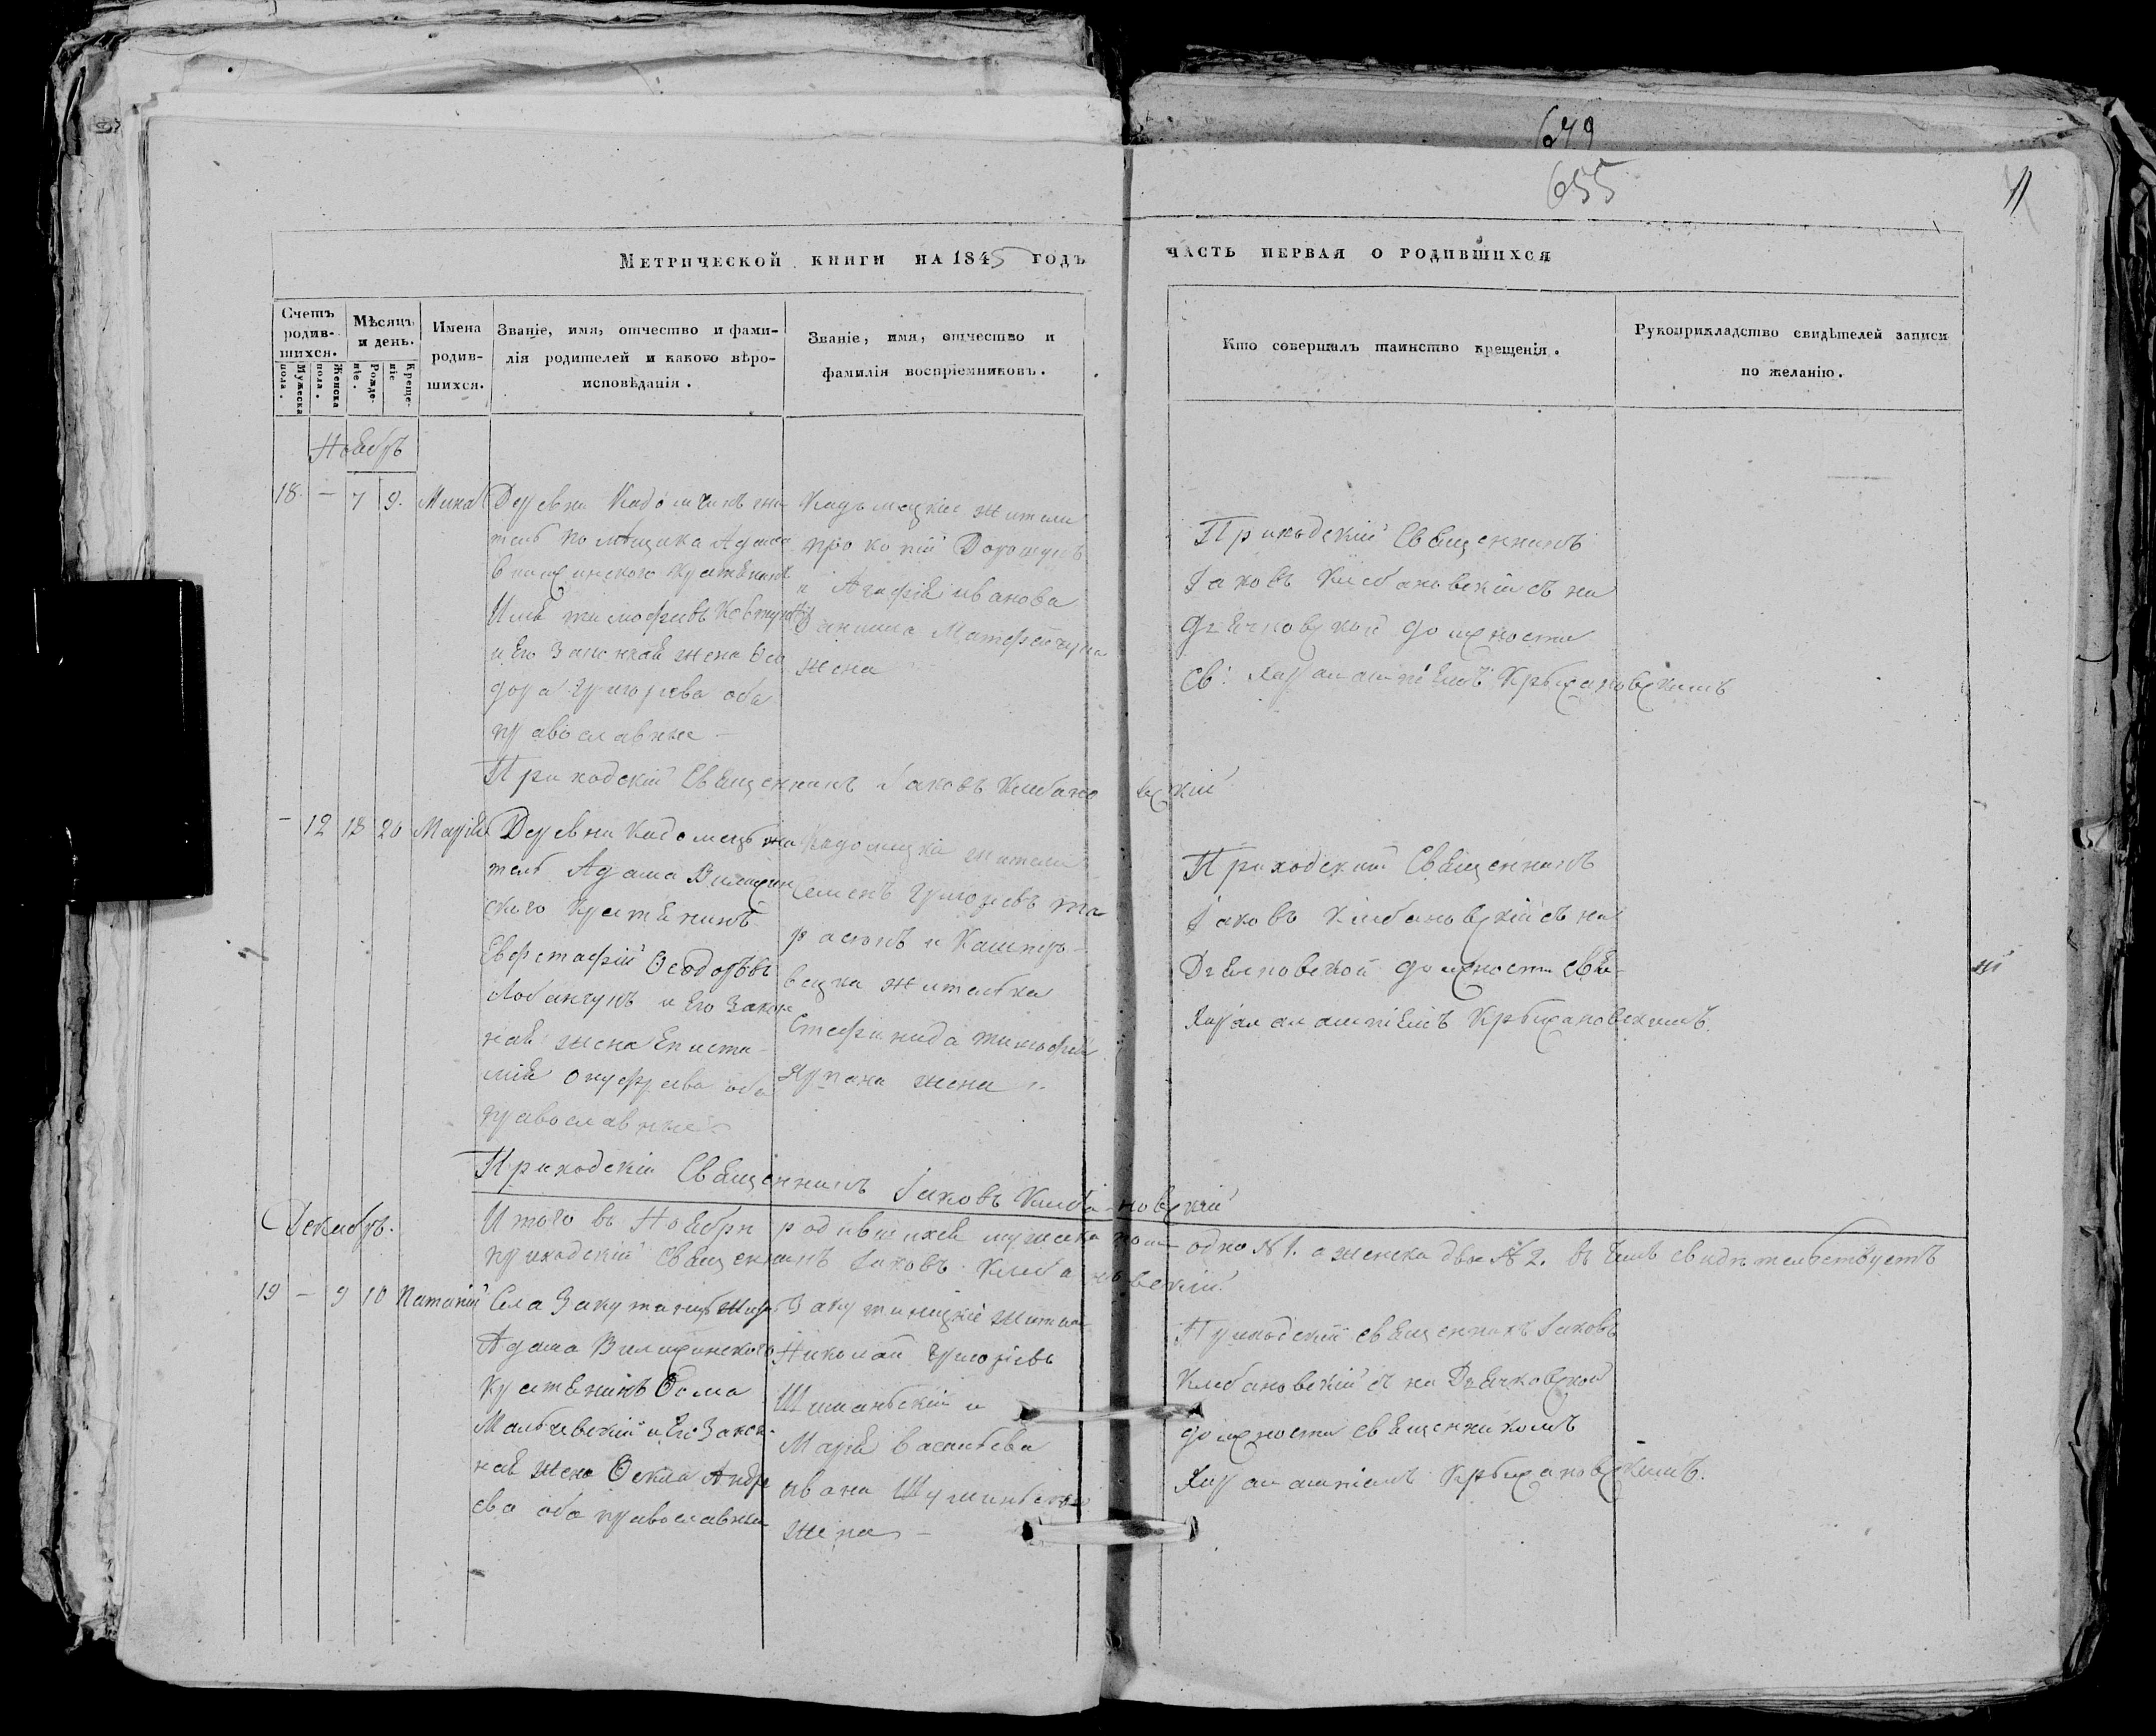 679
655
11
Метрической книги на 1845 годъ
часть первая о родившихся
Счетъ родив-шихся.
Мужеска пола.
Женска пола.
Мѣсяцъ и день.
Рожде-ніе.
Креще-ніе
Имена родив-шихся.
Званіе, имя, отчество и фами-
лія родителей и какого вѣро-
исповѣданія.
Званіе, имя, отчество и
фамилія воспріемниковъ.
Кто совершалъ таинство крещенія.
Рукоприкладство свидѣтелей записи
по желанію.
Ноябръ
18. — 7 9.
Деревни жи
тель помѣщика Адама
крестьянинъ
Илія тимофѣевъ
и Его Законная жена Θео
дора григорієва оба
православные —
жители
прокопій Дорошукъ
и Агафія иванова
Даниила
жена
Приходскій Священникъ
Іаковъ Клебановскій съ на
дьячковской должности
Св: Харалампіемъ Крыжановскимъ
Приходскій Священникъ Іаковъ Клебановскій
— 12 18 20 Марія
Деревни жи
тель Адама Вилежин
ского крестьянинъ
Евфстафій Θеодоровъ
и Его Закон
ная жена Еписти
мія Онуфріева оба
православные
жители
Семенъ григоріевъ та
расюкъ и
вецка жителька
Стефанида тимофея
жена
Приходскій Священникъ
Іаковъ Клебановскій съ на
Дьячковской должности свя-
Харалампіемъ Крыжановскимъ.
Приходскій Священникъ Іаковъ Клебановскій
Итого въ Ноябри родившихся мужеска пола одно № 1. а женска двое № 2. въ чемъ свидѣтельствуетъ
приходскій священникъ Іаковъ Клебановскій.
Декабръ.
19 — 9 10
Села
Адама Вилежинского
крестьянинъ Θома
Мальчевскій и Его Закон-
ная жена Θекла Андре
ева оба православные
Николай григоріевъ
и
Марія васильева
ивана
жена —
Приходскій священникъ Іаковъ
Клебановскій съ на Дьячковской
должности священникомъ
Харалампіемъ Крыжановскимъ.